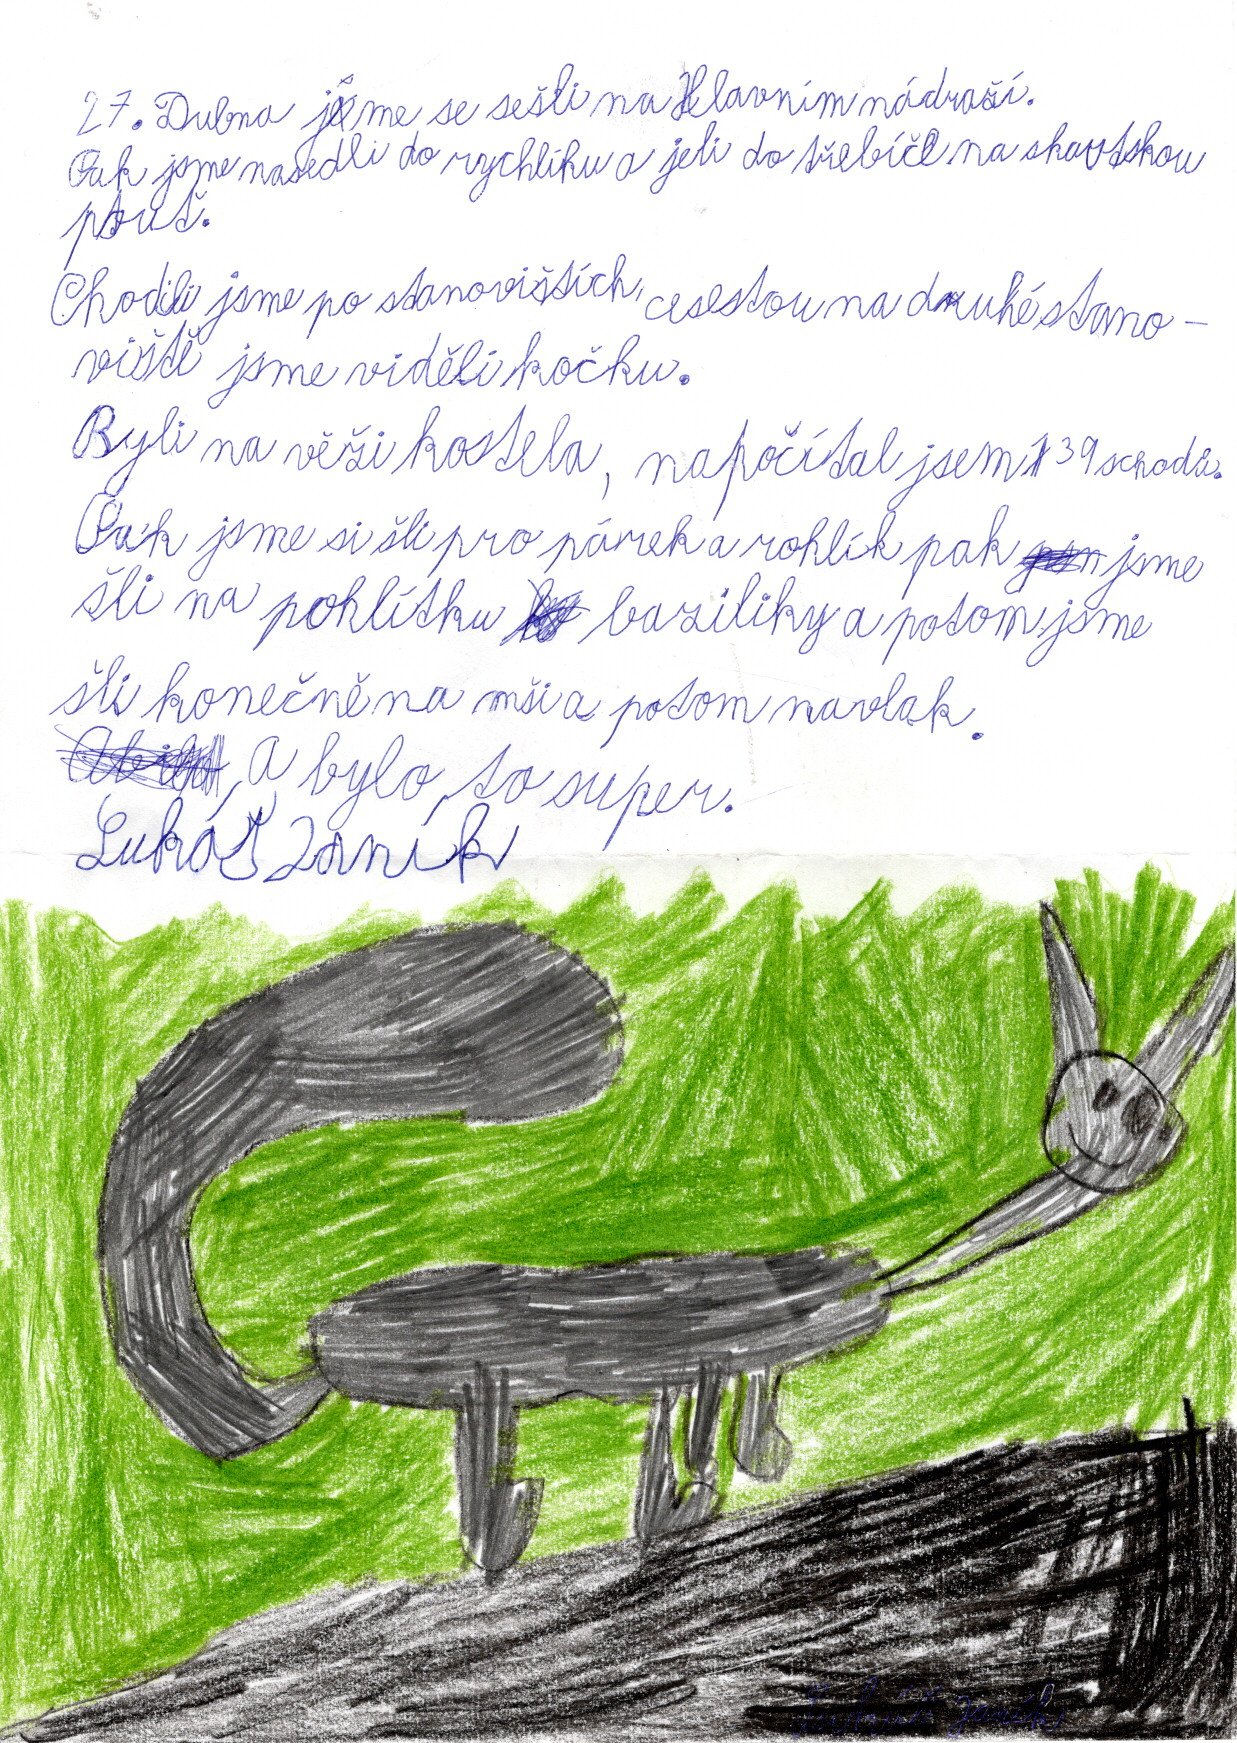 27. Dubna jsme se sešli na Hlavním nádraší.
Pak jsme nasedli do rychlíku a jeli do třebíče na skautskou
pout.
Chodili jsme po stanovištích, cesestou na druhé stano-
viště jsme viděli kočku.
Byli na věži kostela, napočítal jsem 139 schodů.
Pak jsme si šli pro párek a rohlík pak jsme
šli na pohlítku baziliky a potom jsme
šli konečně na mši a potom na vlak.
A bylo to super.
Lukáš Janík